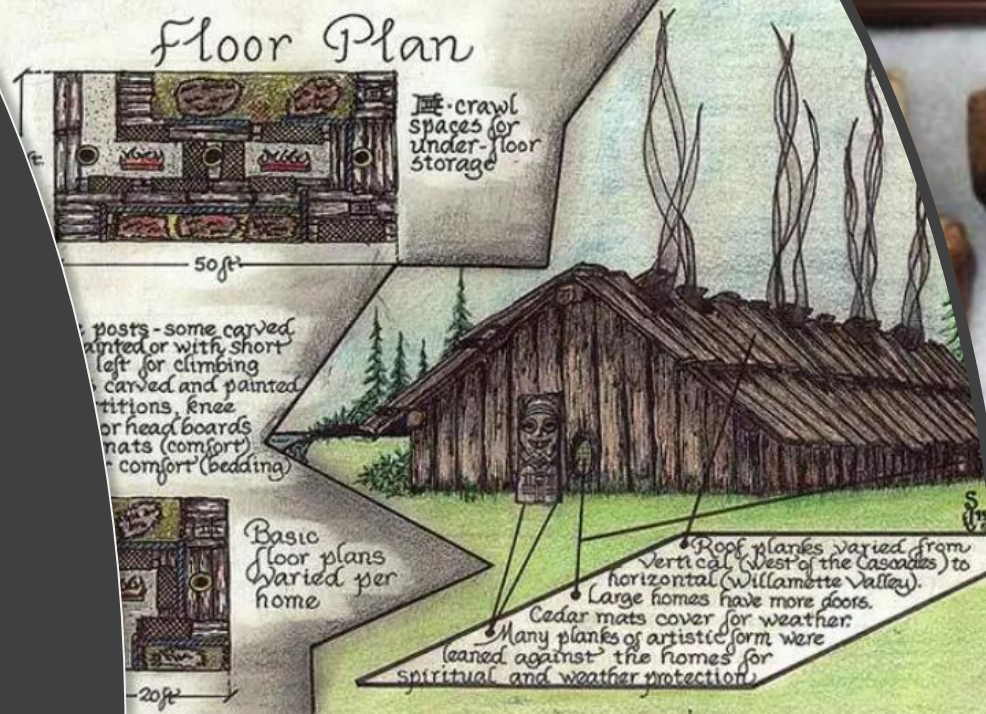 Floor Plan
- crawl
spaces for
under-floor
storage
50ft
posts - some carved
ainted or with short
left for climbing
carved and painted
titions, knee
or head boards
mats (comfort)
comfort (bedding)
Basic
floor plans
varied per
home
20ft
Roof planks varied from
vertical (West of the Cascades) to
horizontal (Willamette Valley).
Large homes have more doors.
Cedar mats cover for weather.
Many planks of artistic form were
leaned against the homes for
spiritual and weather protection